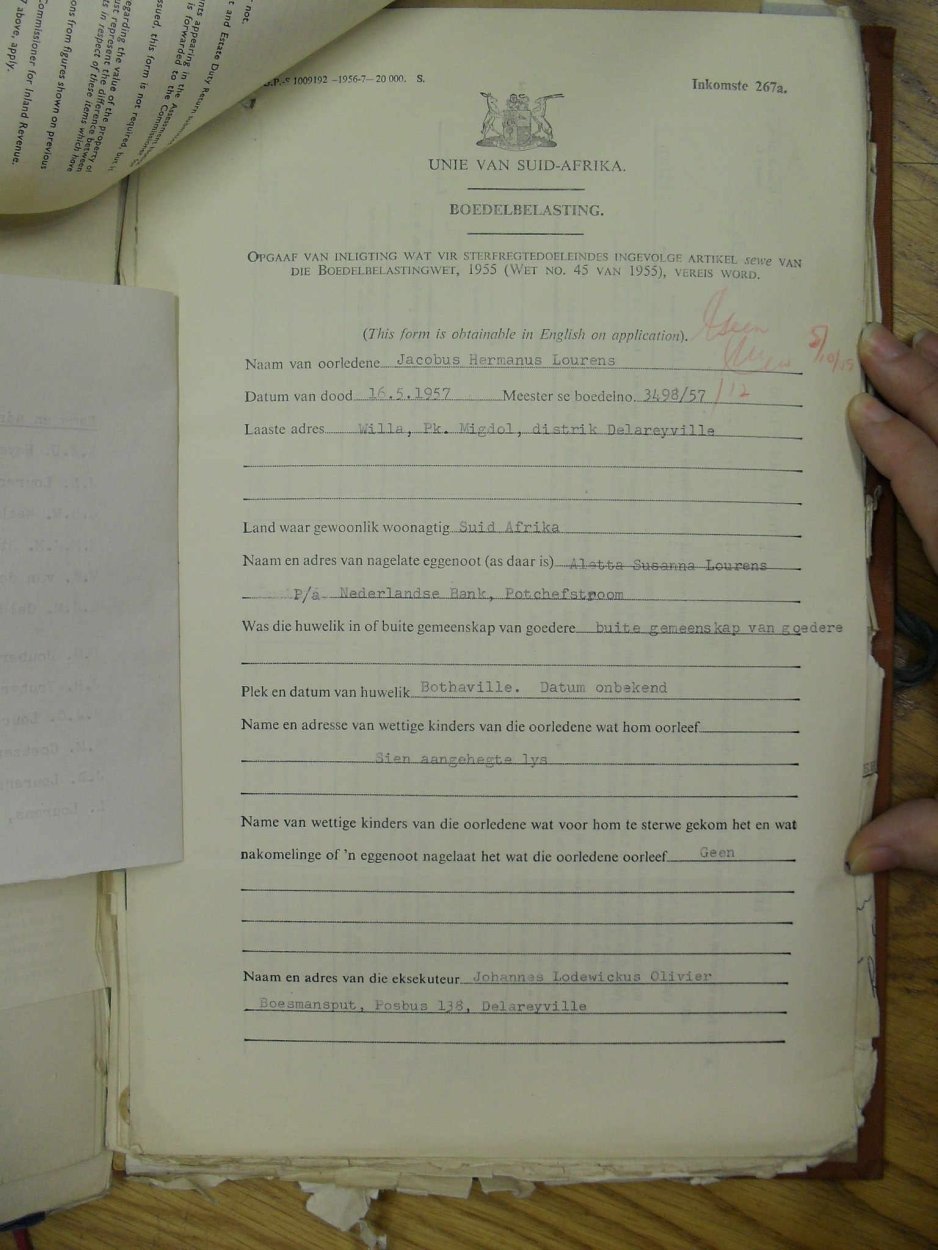 not.
t and Estate Duty Return
nts appearing in the
is forwarded to the
ssued, this form is not required, but
regarding the value of the property
ust represent the difference between
s in respect of these items which have
ons from figures shown on previous
Commissioner for Inland Revenue.
7 above, apply.
S 1009192 —1956-7— 20 000. S.
Inkomste 267a.
UNIE VAN SUID-AFRIKA.
BOEDELBELASTING.
OPGAAF VAN INLIGTING WAT VIR STERFREGTEDOELEINDES INGEVOLGE ARTIKEL sewe VAN
DIE BOEDELBELASTINGWET, 1955 (WET NO. 45 VAN 1955), VEREIS WORD.
(This form is obtainable in English on application).
Naam van oorledene Jacobus Hermanus Lourens
Datum van dood 16.5.1957 Meester se boedelno. 3498/57 /12
Laaste adres Willa, Pk. Migdol, distrik Delareyville
Land waar gewoonlik woonagtig Suid Afrika
Naam en adres van nagelate eggenoot (as daar is) Aletta Susanna Lourens
P/a Nederlandse Bank, Potchefstroom
Was die huwelik in of buite gemeenskap van goedere buite gemeenskap van goedere
Plek en datum van huwelik Bothaville. Datum onbekend
Name en adresse van wettige kinders van die oorledene wat hom oorleef
Sien aangehegte lys
Name van wettige kinders van die oorledene wat voor hom te sterwe gekom het en wat
nakomelinge of 'n eggenoot nagelaat het wat die oorledene oorleef Geen
Naam en adres van die eksekuteur Johannes Lodewickus Olivier
Boesmansput, Posbus 138, Delareyville